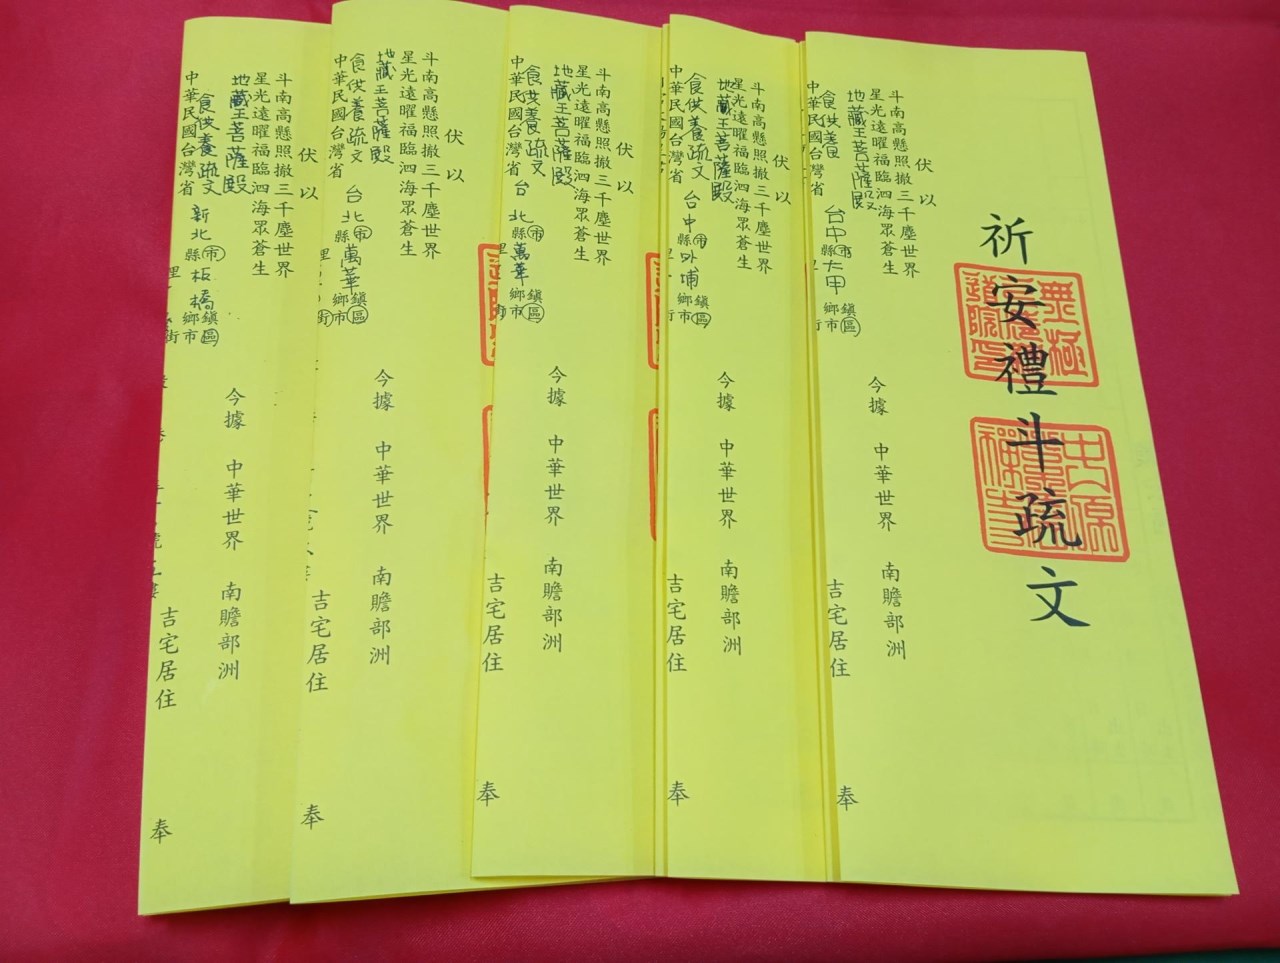 祈安禮斗疏文
無極
中原
禪寺
伏以
斗南高懸照撤三千塵世界
星光遠曜福臨泗海眾蒼生
地藏王菩薩殿
食供養
中華民國台灣省 台中縣市大甲鄉鎮市區
今據 中華世界 南贍部洲
吉宅居住
奉
伏以
斗南高懸照撤三千塵世界
星光遠曜福臨泗海眾蒼生
地藏王菩薩殿
食供養疏文
中華民國台灣省 台中縣市外埔鄉鎮市區
今據 中華世界 南贍部洲
吉宅居住
奉
伏以
斗南高懸照撤三千塵世界
星光遠曜福臨泗海眾蒼生
地藏王菩薩殿
食供養疏文
中華民國台灣省 台北縣市萬華鄉鎮市區
今據 中華世界 南贍部洲
吉宅居住
奉
伏以
斗南高懸照撤三千塵世界
星光遠曜福臨泗海眾蒼生
地藏王菩薩殿
食供養疏文
中華民國台灣省 台北縣市萬華鄉鎮市區
今據 中華世界 南贍部洲
吉宅居住
奉
伏以
斗南高懸照撤三千塵世界
星光遠曜福臨泗海眾蒼生
地藏王菩薩殿
食供養疏文
中華民國台灣省 新北縣市板橋鄉鎮市區
今據 中華世界 南贍部洲
吉宅居住
奉